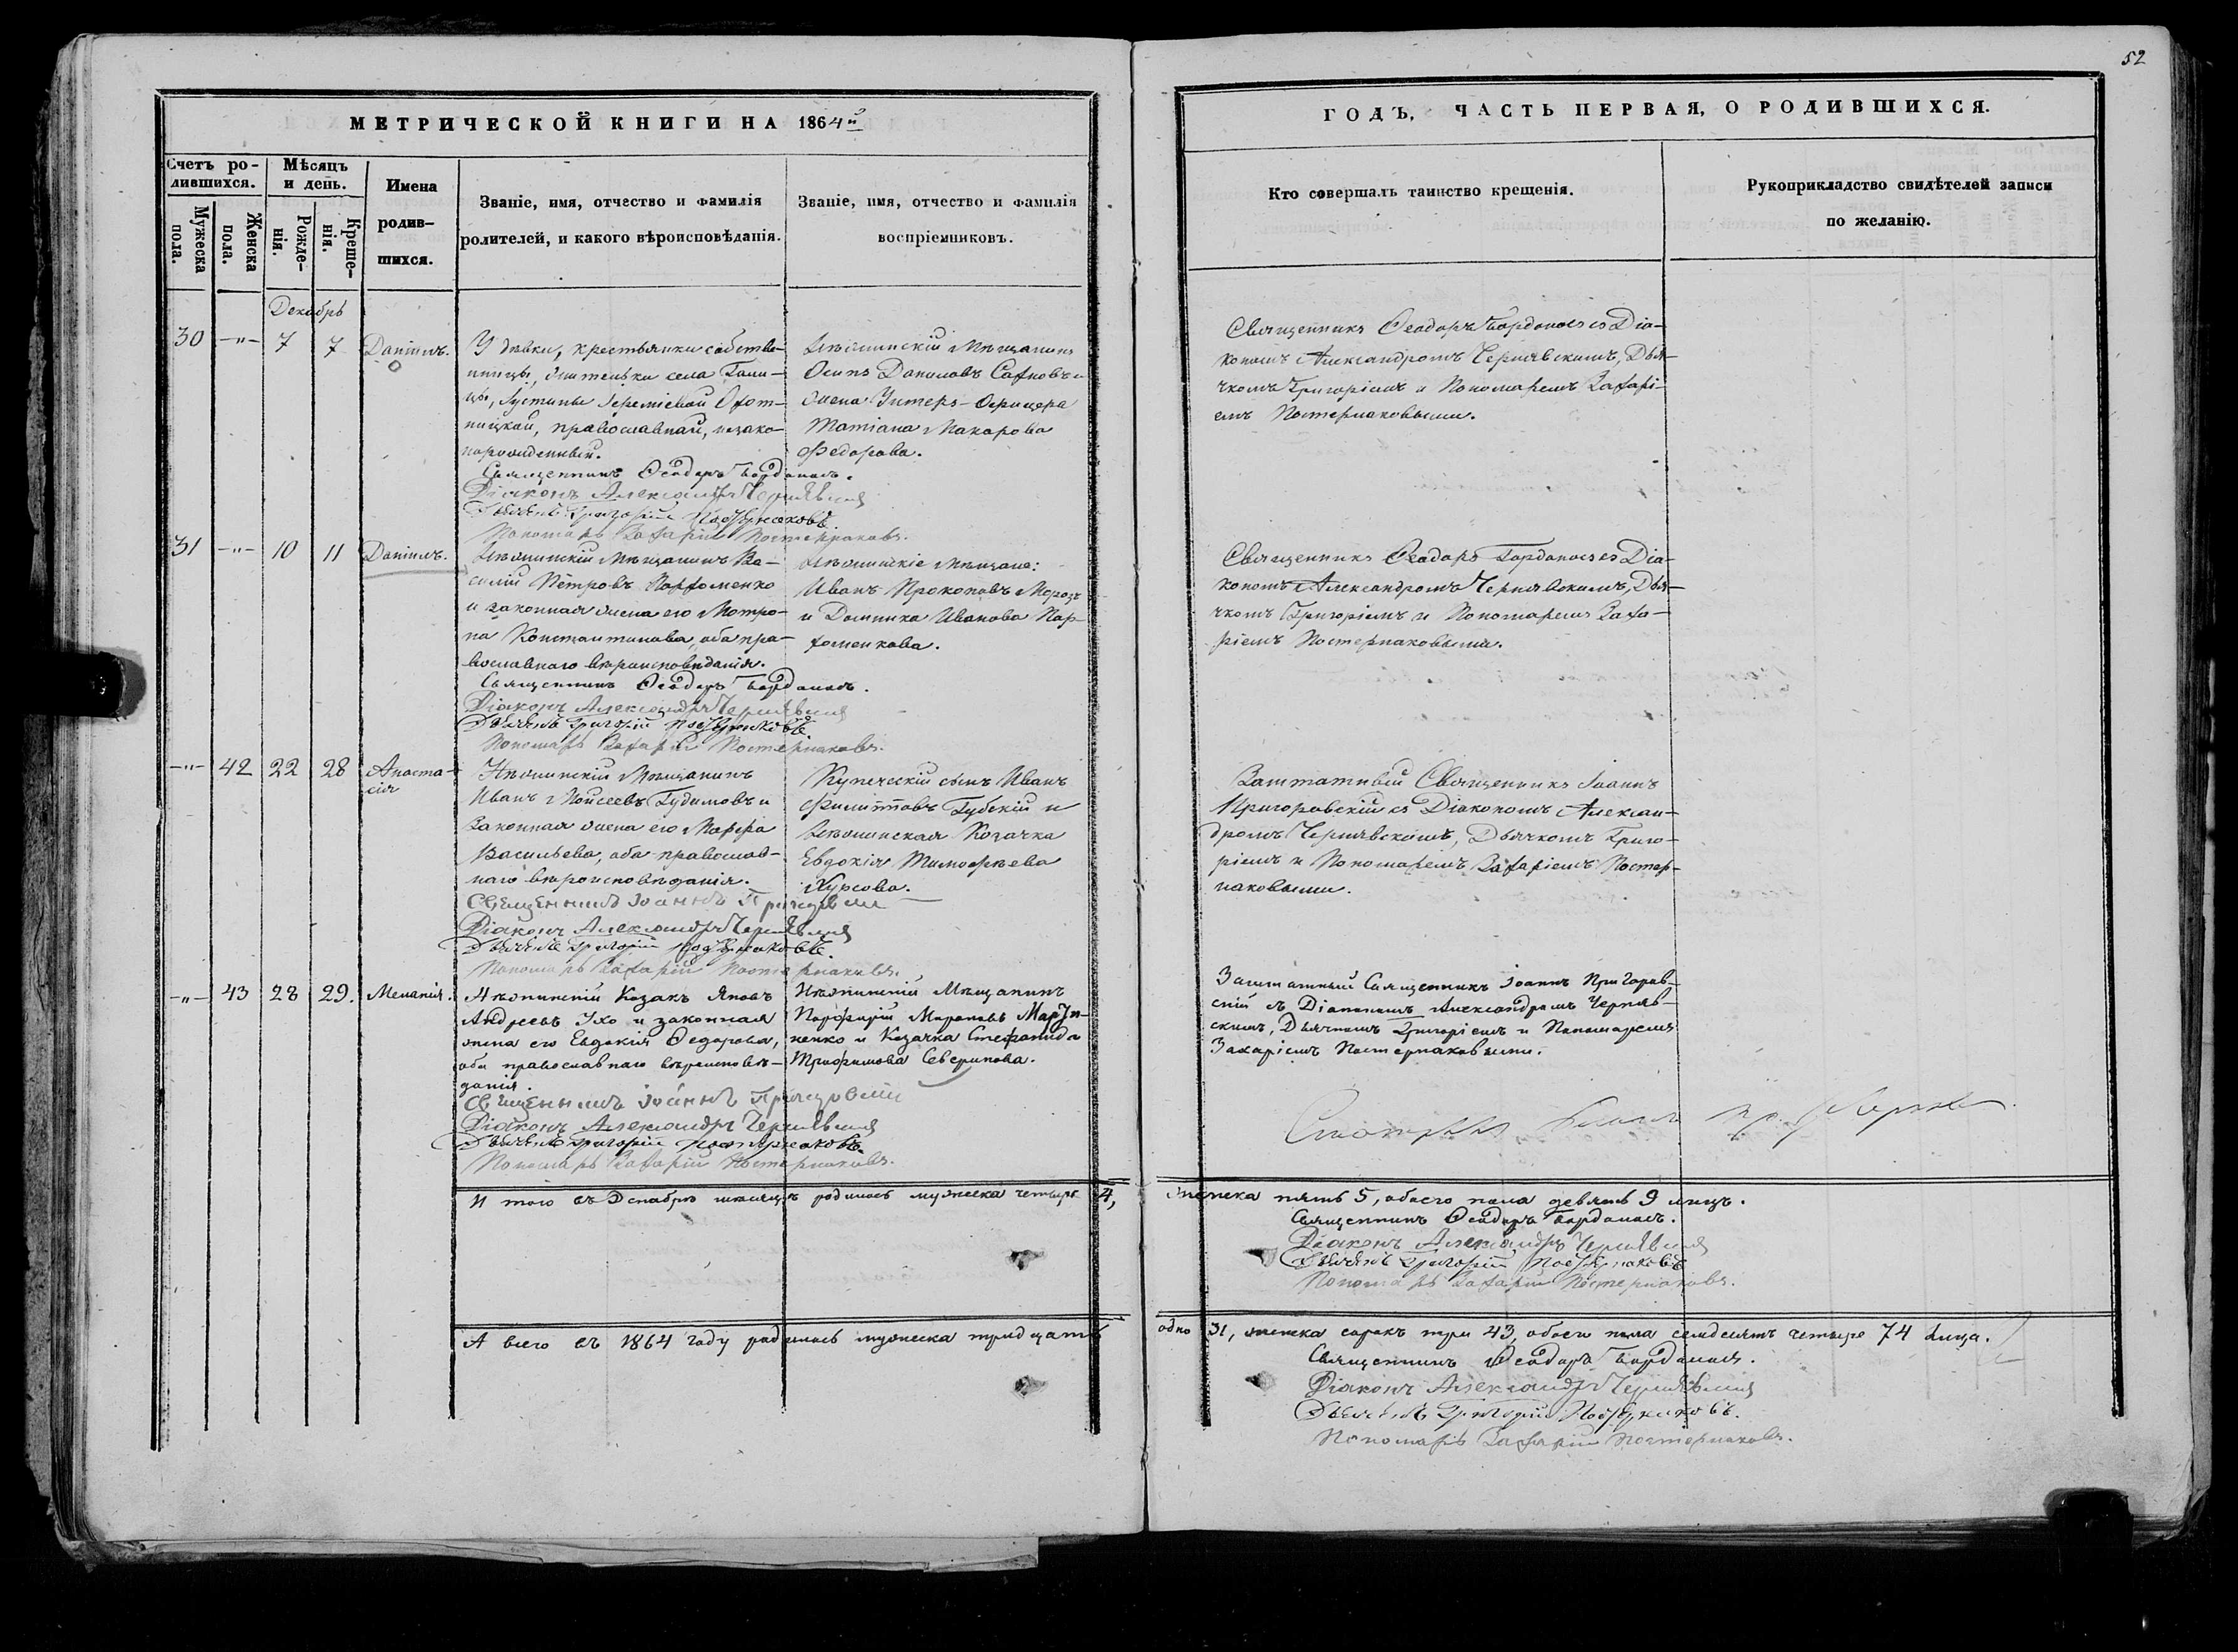 52
МЕТРИЧЕСКОЙ КНИГИ НА 1864й
ГОДЪ, ЧАСТЬ ПЕРВАЯ, О РОДИВШИХСЯ.
Счетъ ро-
дившихся.
Мужеска
пола.
Женска
пола.
Мѣсяцъ
и день.
Рожде-
нія.
Креще-
нія.
Имена
родив-
шихся.
Званіе, имя, отчество и фамилія
родителей, и какого вѣроисповѣданія.
Званіе, имя, отчество и фамилія
воспріемниковъ.
Кто совершалъ таинство крещенія.
Рукоприкладство свидѣтелей записи
по желанію.
Декабрь
30 -"- 7 7 Даніилъ.
У дѣвки, крестьянки собстве-
нницы, жительки села
Іереміевой
православной, незако-
норожденный.
Священникъ Ѳеодоръ
Діаконъ Александръ Чернявскій
Дьячекъ Григорій Постернаковъ.
Пономарь Захарій Постернаковъ.
Нѣжинскій Мѣщанинъ
Осипъ Даниловъ и
жена Унтеръ-Офицера
Татіана Макарова
Федорова.
Священникъ Ѳеодоръ съ Діа-
кономъ Александромъ Чернявскимъ, Дья-
чкомъ Григоріемъ и Пономаремъ Захарі-
емъ Постернаковыми.
31 -"- 10 11 Даніилъ.
Нѣжинскій Мѣщанинъ Ва-
силій Петровъ Парфоменко
и законная жена его Матро-
на Константинова, оба пра-
вославнаго вѣроисповѣданія.
Священникъ Ѳеодоръ
Діаконъ Александръ Чернявскій
Дьячекъ Григорій Постернаковъ.
Пономарь Захарій Постернаковъ.
Нѣжинскіе Мѣщане:
Иванъ Прокоповъ Морозъ
и Домника Иванова Пар-
фоменкова.
Священникъ Ѳеодоръ съ Діа-
кономъ Александромъ Чернявскимъ, Дья-
чкомъ Григоріемъ и Пономаремъ Заха-
ріемъ Постернаковыми.
-"- 42 22 28 Анаста-
сія
Нѣжинскій Мѣщанинъ
Иванъ Моисеевъ Гудимовъ и
Законная жена его Марфа
Васильева, оба православ-
наго вѣроисповѣданія.
Священникъ Іоаннъ Пригоровскій
Діаконъ Александръ Чернявскій
Дьячекъ Григорій Постернаковъ.
Пономарь Захарій Постернаковъ.
Купеческій сынъ Иванъ
Филипповъ Губскій и
Нѣжинская Козачка
Евдокія Тимофѣева
Заштатный Священникъ Іоаннъ
Пригоровскій съ Діакономъ Алексан-
дромъ Чернявскимъ, Дьячкомъ Григо-
ріемъ и Пономаремъ Захаріемъ Постер-
наковыми.
-"- 43 28 29. Меланія.
Нѣжинскій Козакъ Яковъ
Андреевъ Ухо и законная
жена его Евдокія Ѳедорова,
оба православнаго вѣроисповѣ-
данія.
Священникъ Іоаннъ Пригоровскій
Діаконъ Александръ Чернявскій
Дьячекъ Григорій Постернаковъ.
Пономарь Захарій Постернаковъ.
Нѣжинскій Мѣщанинъ
Порфирій Марковъ Марты-
ненко и Козачка Стефанида
Трофимова Северинова.
Заштатный Священникъ Іоаннъ Пригоров-
скій съ Діакономъ Александромъ Черняв-
скимъ, Дьячкомъ Григоріемъ и Пономаремъ
Захаріемъ Постернаковыми.
И того въ Декабрѣ мѣсяцѣ родилось мужеска четыре 4, женска пять 5, обоего пола девять 9 лицъ.
Священникъ Ѳеодоръ
Діаконъ Александръ Чернявскій
Дьячекъ Григорій Постернаковъ
Пономарь Захарій Постернаковъ.
А всего въ 1864 году родилось мужеска тридцать одно 31, женска сорокъ три 43, обоего пола семдесятъ четыре 74 лица.
Священникъ Ѳеодоръ
Діаконъ Александръ Чернявскій
Дьячекъ Григорій Постернаковъ.
Пономарь Захарій Постернаковъ.